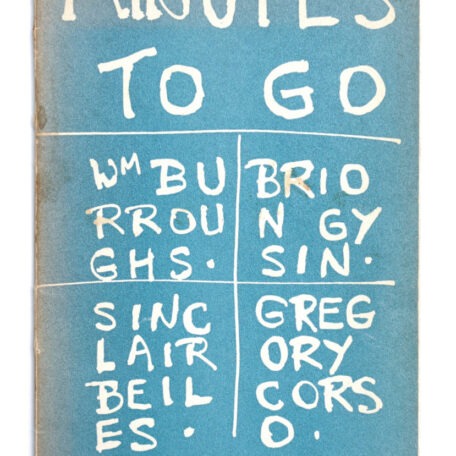 MINUTES
TO GO
WM BU
RROU
GHS.
BRIO
N GY
SIN.
SINC
LAIR
BEIL
ES.
GREG
ORY
CORS
O.